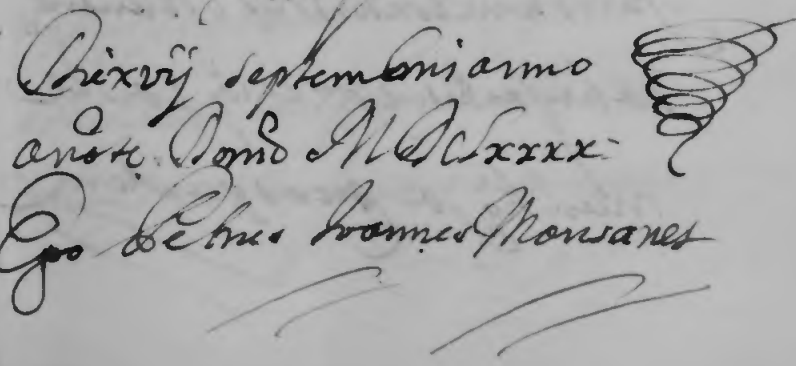 Die xvij septembris anno
a natte Domi M DC Lxxxx
Ego Petrus Joannes Monsanes